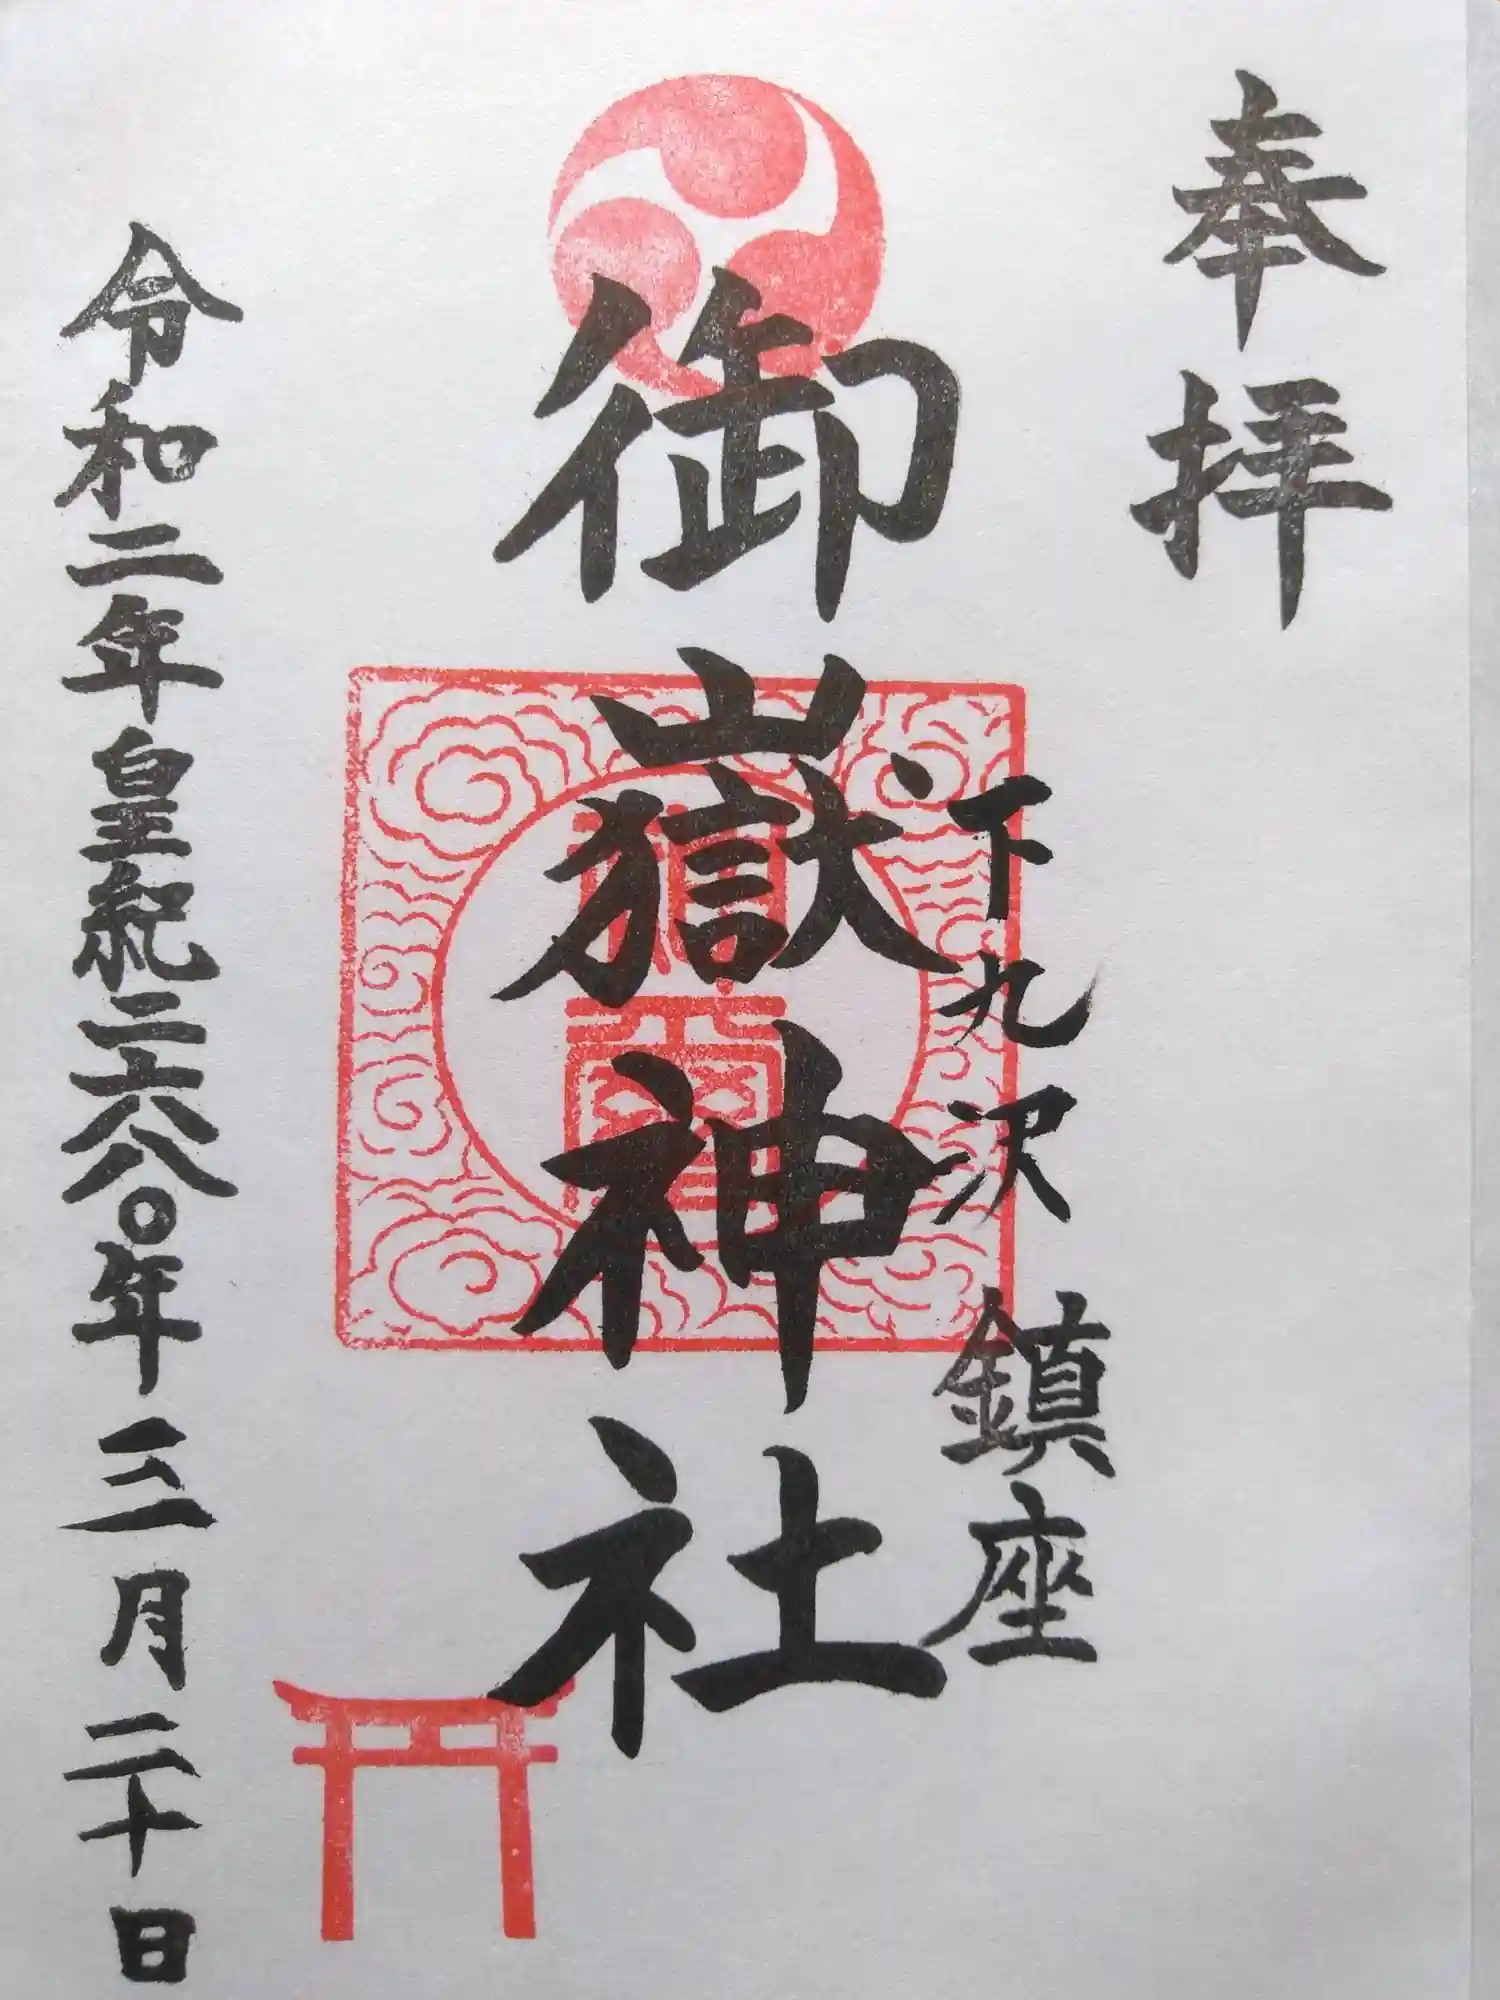 奉拝
下九沢 鎮座
御嶽神社
令和二年皇紀二六八〇年三月二十日